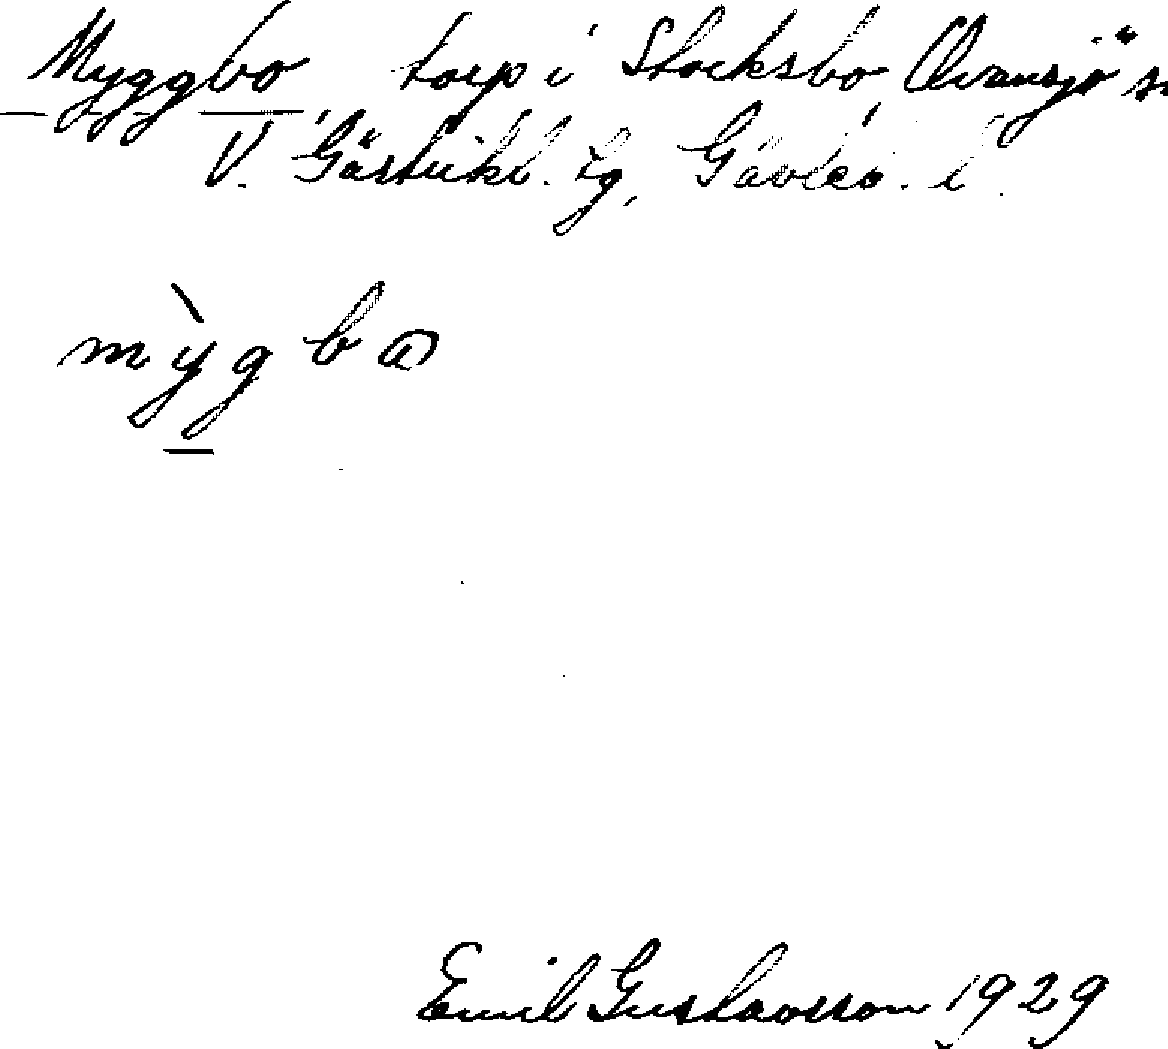 Myggbo torp i Stocksbo, Ovansjö sn
V. Gästrikl. tg, Gävleb. l.
mỳgbω
Emil Gustavsson 1929